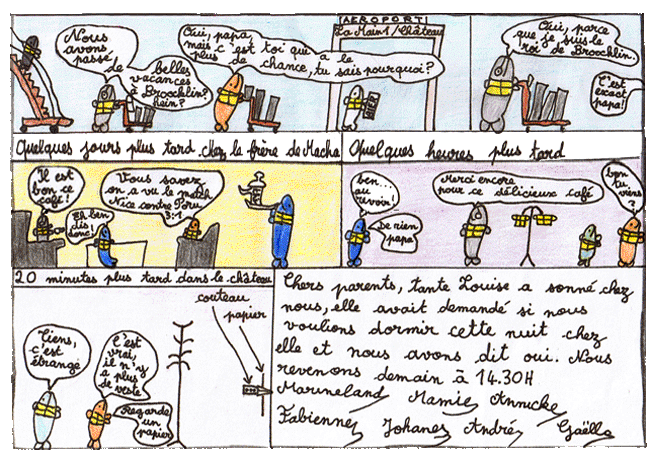 AEROPORT
La Main1/Château
Nous
avons
passé
de
belles
vacances
à Brocchlin?
hein?
Oui, papa,
mais c'est toi qui a le
plus de chance, tu sais pourquoi?
Oui, parce
que je suis le
roi de Brocchlin.
C'est
exact
papa!
Quelques jours plus tard chez le frère de Macha
Il est
bon ce
café!
Eh ben
dis
donc!
Vous savez,
on a vu le match
Nice contre Pérou
3:1
Quelques heures plus tard
ben...
au
revoir!
De rien
papa
Merci encore
pour ce délicieux café
ben
tu
viens?
20 minutes plus tard dans le château
Tiens,
c'est
étrange
C'est
vrai,
il n'y
a plus
de veste
Regarde
un
papier
couteau
papier
Chers parents, tante Louise a sonné chez
nous, elle avait demandé si nous
voulions dormir cette nuit chez
elle et nous avons dit oui. Nous
revenons demain à 14.30H
Marineland Mamie Annicke
Fabienne Johanes André Gaëlle